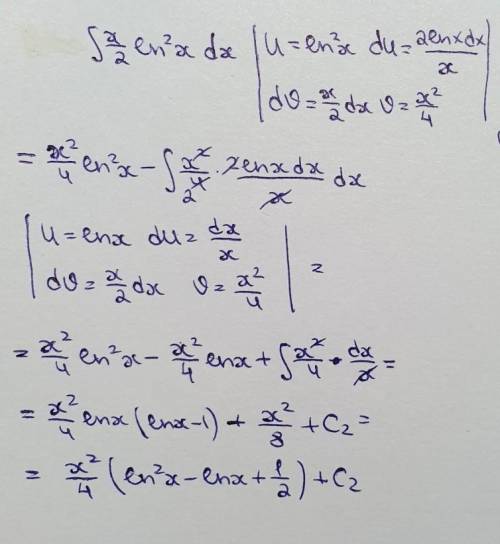 ∫ x/2 ln²x dx | u = ln²x du = 2lnx dx/x
| dv = x/2 dx v = x²/4 |
= x²/4 ln²x - ∫ x²/4 · 2lnx dx/x dx
2
| u = lnx du = dx/x
| dv = x/2 dx v = x²/4 | =
= x²/4 ln²x - x²/4 lnx + ∫ x²/4 · dx/x =
= x²/4 lnx (lnx - 1) + x²/8 + C₂ =
= x²/4 (ln²x - lnx + 1/2) + C₂